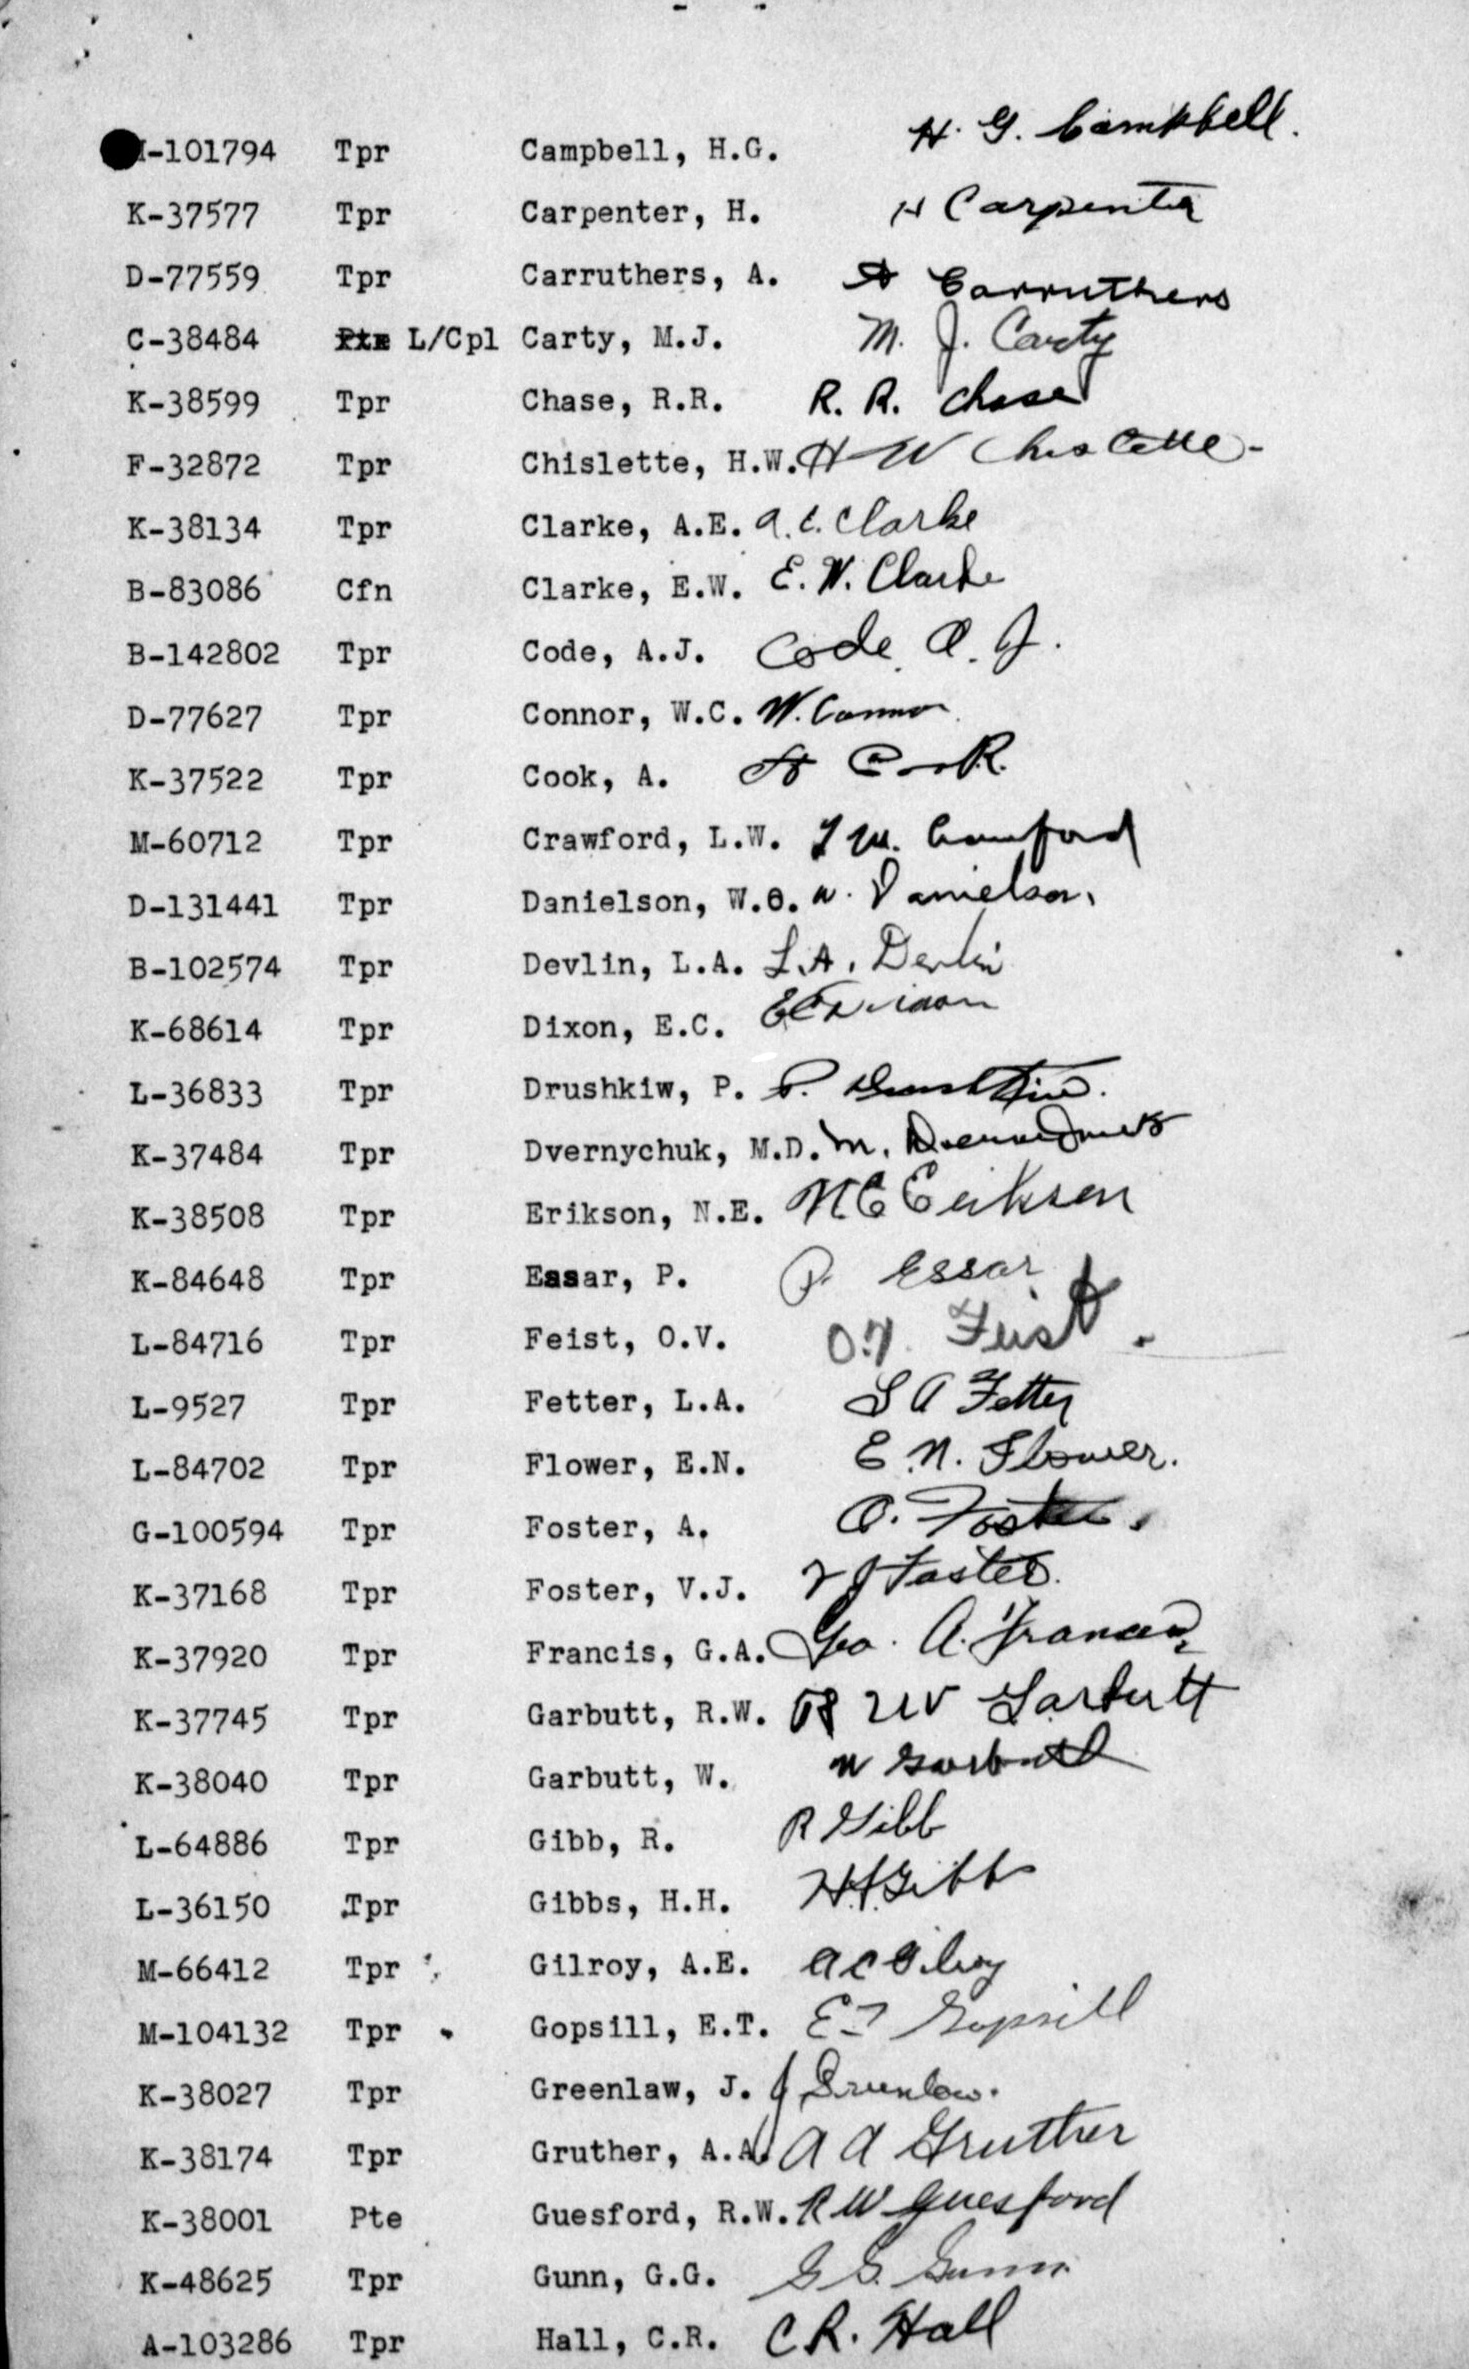 -101794 Tpr Campbell, H.G. H. G. Campbell.
K-37577 Tpr Carpenter, H. H Carpenter
D-77559 Tpr Carruthers, A. A Carruthers
C-38484 L/Cpl Carty, M.J. M. J. Carty
K-38599 Tpr Chase, R.R. R. R. Chase
F-32872 Tpr Chislette, H.W. H W Chislette
K-38134 Tpr Clarke, A.E. A.E. Clarke
B-83086 Cfn Clarke, E.W. E.W. Clarke
B-142802 Tpr Code, A.J. Code A. J.
D-77627 Tpr Connor, W.C. W. Connor
K-37522 Tpr Cook, A. A Cook.
M-60712 Tpr Crawford, L.W. L W. Crawford
D-131441 Tpr Danielson, W.O. W. Danielson.
B-102574 Tpr Devlin, L.A. L.A. Devlin
K-68614 Tpr Dixon, E.C. E C Dixon
L-36833 Tpr Drushkiw, P. P. Drushkiw.
K-37484 Tpr Dvernychuk, M.D. M.
K-38508 Tpr Erikson, N.E. N E Erikson
K-84648 Tpr Essar, P. P. Essar
L-84716 Tpr Feist, O.V. O.V. Feist.
L-9527 Tpr Fetter, L.A. L A Fetter
L-84702 Tpr Flower, E.N. E.N. Flower.
G-100594 Tpr Foster, A. A. Foster.
K-37168 Tpr Foster, V.J. V J Foster.
K-37920 Tpr Francis, G.A. Geo. A. Francis
K-37745 Tpr Garbutt, R.W. R W Garbutt
K-38040 Tpr Garbutt, W. W Garbutt
L-64886 Tpr Gibb, R. R Gibb
L-36150 Tpr Gibbs, H.H. H.H. Gibbs
M-66412 Tpr Gilroy, A.E. A E Gilroy
M-104132 Tpr Gopsill, E.T. E T Gopsill
K-38027 Tpr Greenlaw, J. J Greenlaw.
K-38174 Tpr Gruther, A.A. A A Gruther
K-38001 Pte Guesford, R.W. R W Guesford
K-48625 Tpr Gunn, G.G. G G. Gunn.
A-103286 Tpr Hall, C.R. C.R. Hall